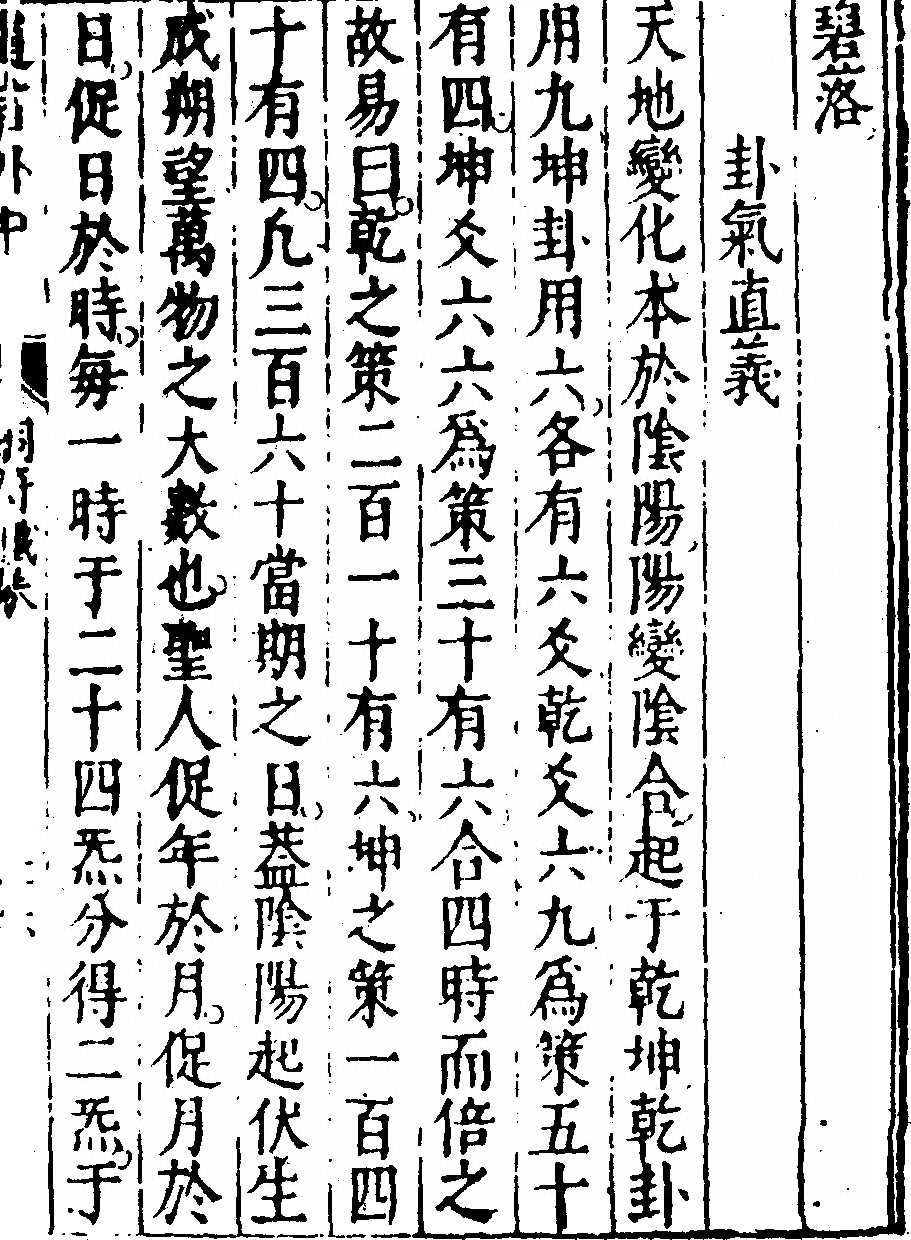 碧落
卦氣直義
天地變化本於陰陽陽變陰合起于乾坤乾卦
用九坤卦用六各有六爻乾爻六九爲策五十
有四坤爻六六爲策三十有六合四時而倍之
故易曰乾之策二百一十有六坤之策一百四
十有四凡三百六十當期之日蓋陰陽起伏生
成朔望萬物之大數也聖人促年於月促月於
日促日於時每一時于二十四炁分得二炁于